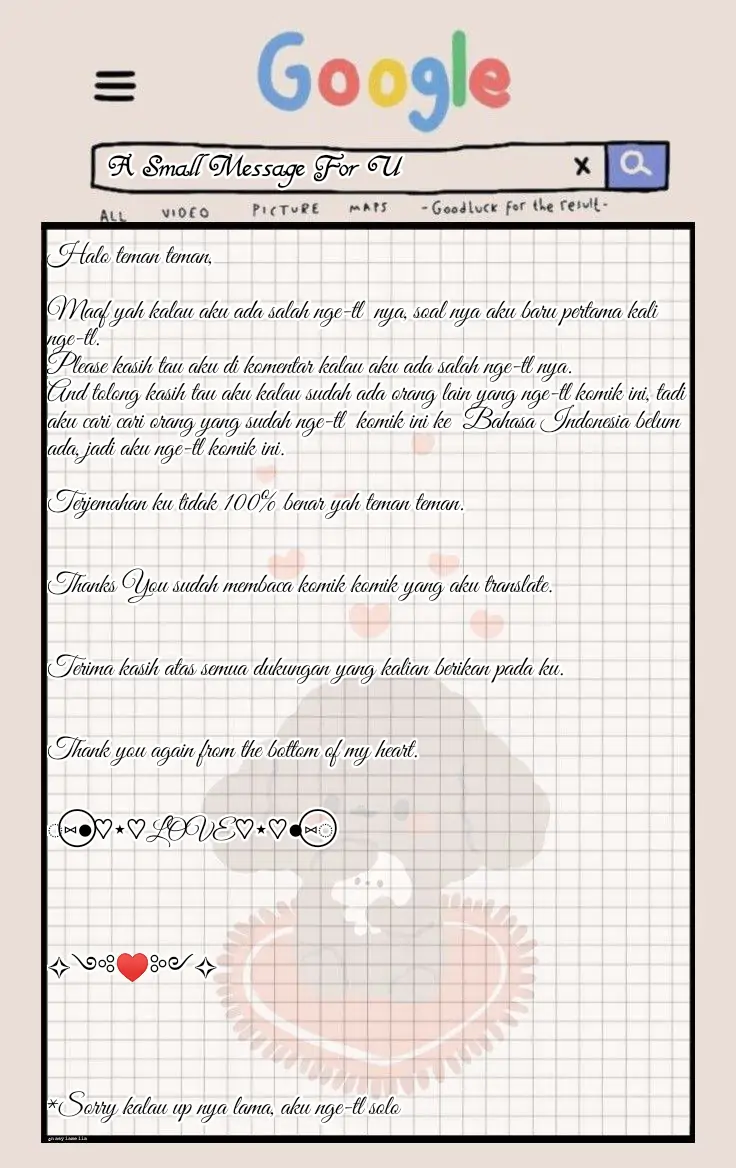 Google
A Small Message For U X
ALL VIDEO PICTURE MAPS -Goodluck for the result-
Halo teman teman,
Maaf yah kalau aku ada salah nge-tl nya, soal nya aku baru pertama kali
nge-tl.
Please kasih tau aku di komentar kalau aku ada salah nge-tl nya.
And tolong kasih tau aku kalau sudah ada orang lain yang nge-tl komik ini, tadi
aku cari cari orang yang sudah nge-tl komik ini ke Bahasa Indonesia belum
ada, jadi aku nge-tl komik ini.
Terjemahan ku tidak 100% benar yah teman teman.
Thanks You sudah membaca komik komik yang aku translate.
Terima kasih atas semua dukungan yang kalian berikan pada ku.
Thank you again from the bottom of my heart.
♡⋆♡LOVE♡⋆♡
*Sorry kalau up nya lama, aku nge-tl solo